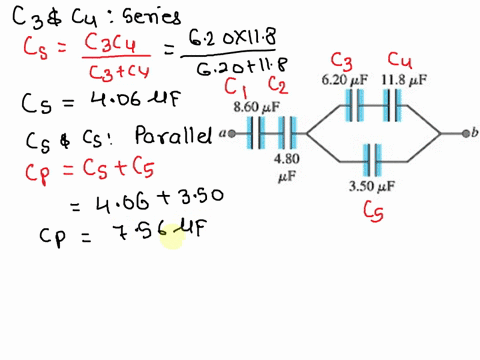 C3 & C4 : Series
Cs = C3C4 / C3+C4 = 6.20×11.8 / 6.20+11.8
Cs = 4.06 μF
Cs & C5 : Parallel
Cp = Cs + C5
= 4.06 + 3.50
Cp = 7.56 μF
C3 C4
6.20 μF 11.8 μF
C1 C2
8.60 μF
a b
4.80
μF
3.50 μF
C5